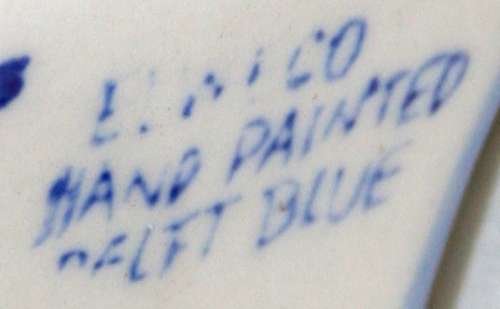 HAND PAINTED
DELFT BLUE